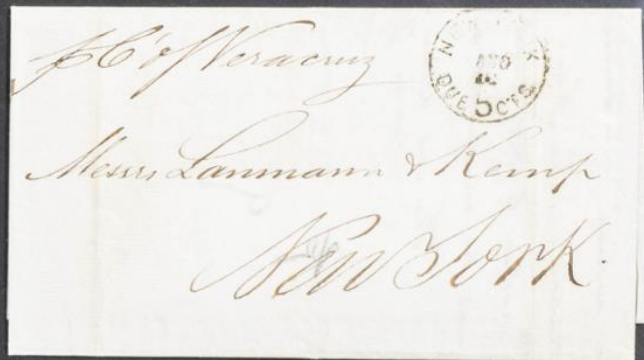 p C of Veracruz
NEW YORK
AUG
DUE 5 CTS
Messrs Lanmann & Kemp
New York